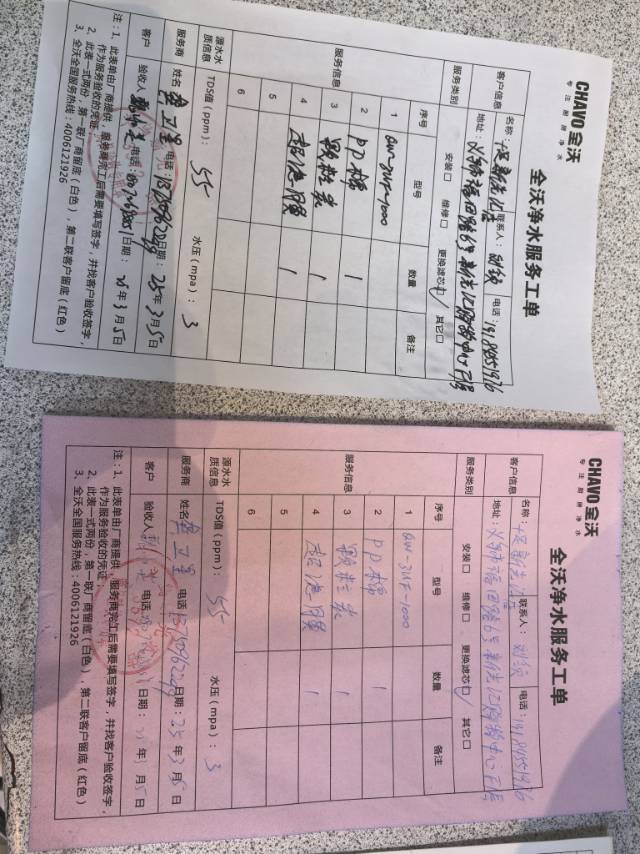 CHAVO 全沃
专注厨房净水
全沃净水服务工单
客户信息 名称: 联系人: 刘 电话:
地址: 新光汇购物中心
服务类别 安装□ 维修□ 更换滤芯□ 其它□
服务信息 序号 型号 数量 备注
1 QW-3UF-1000
2 PP棉 1
3 颗粒炭 1
4 超滤膜 1
5
6
源水水质信息 TDS值(ppm): 55 水压(mpa): 3
服务商 姓名 卫星 电话: 日期: 25年3月5日
客户 验收人 电话: 日期: 25年3月5日
注:1、此表单由厂商提供,服务商完工后需要填写签字,并找客户验收签字,
作为服务验收的凭证。
2、此表一式两份,第一联厂商留底(白色),第二联客户留底(红色)
3、全沃全国服务热线:4006121926
CHAVO 全沃
专注厨房净水
全沃净水服务工单
客户信息 名称: 联系人: 刘 电话:
地址: 新光汇购物中心
服务类别 安装□ 维修□ 更换滤芯□ 其它□
服务信息 序号 型号 数量 备注
1 QW-3UF-1000
2 PP棉 1
3 颗粒炭 1
4 超滤膜 1
5
6
源水水质信息 TDS值(ppm): 55 水压(mpa): 3
服务商 姓名 卫星 电话: 日期: 25年3月5日
客户 验收人 电话: 日期: 年 月5日
注:1、此表单由厂商提供,服务商完工后需要填写签字,并找客户验收签字,
作为服务验收的凭证。
2、此表一式两份,第一联厂商留底(白色),第二联客户留底(红色)
3、全沃全国服务热线:4006121926